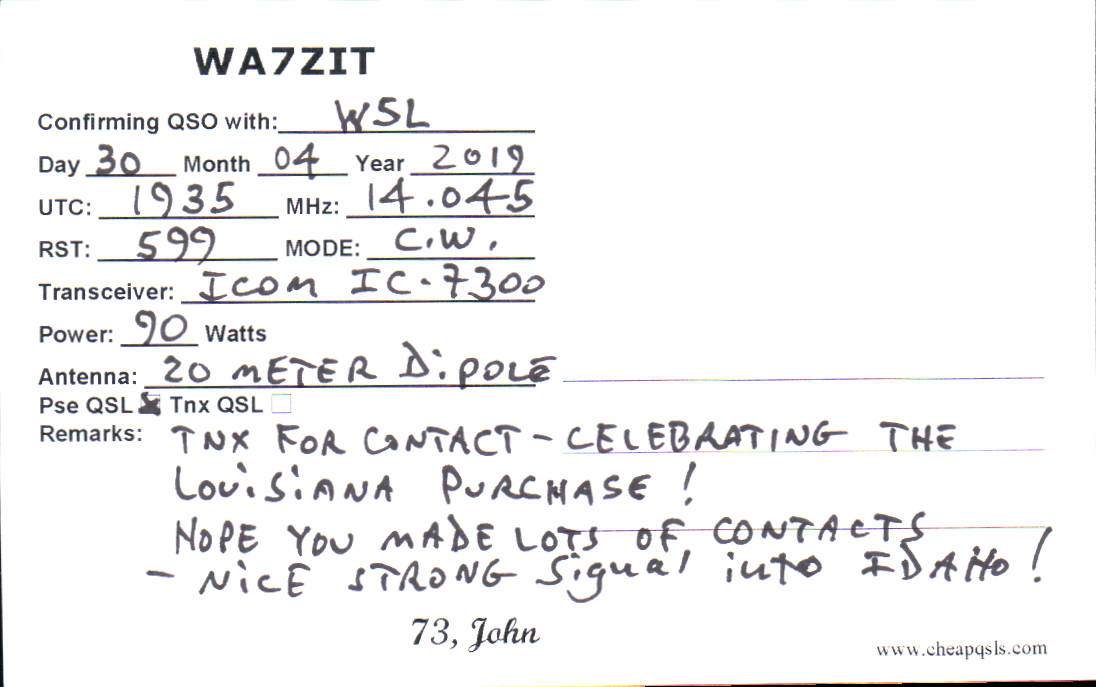 WA7ZIT
Confirming QSO with: W5L
Day 30 Month 04 Year 2019
UTC: 1935 MHz: 14.045
RST: 599 MODE: C.W.
Transceiver: ICOM IC-7300
Power: 90 Watts
Antenna: 20 METER DiPOLE
Pse QSL Tnx QSL
Remarks: TNX FOR CONTACT - CELEBRATING THE
LOUiSiANA PURCHASE!
HOPE YOU MADE LOTS OF CONTACTS
- NiCE STRONG Signal into IDAHO!
73, John
www.cheapqsls.com